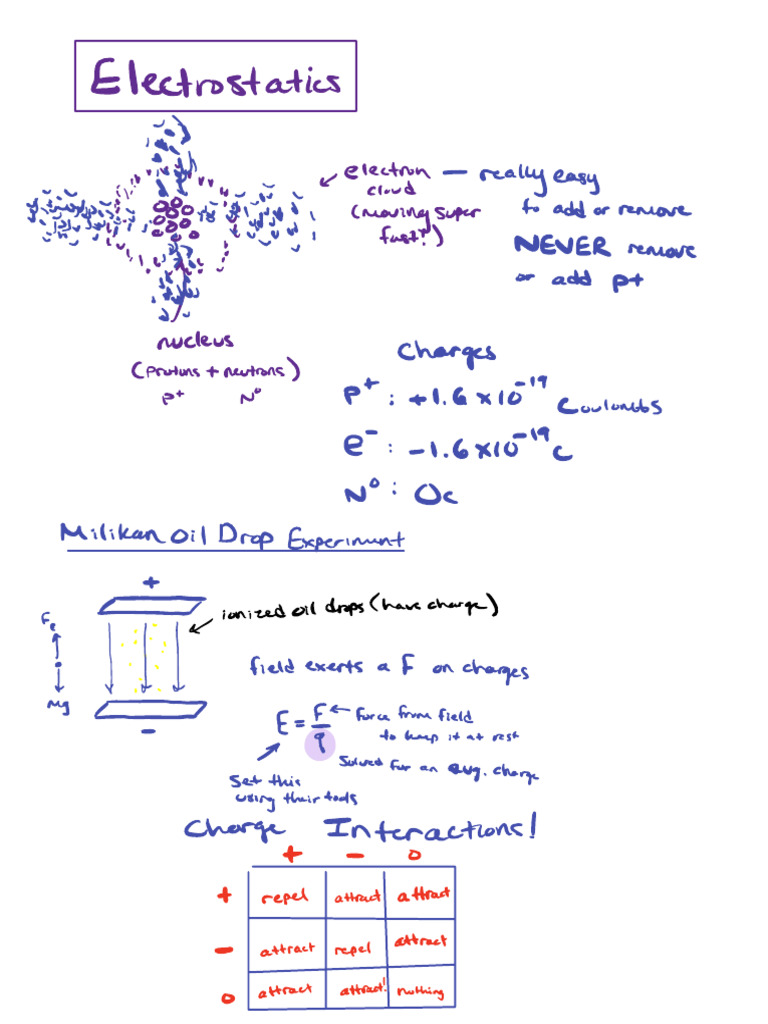 Electrostatics
electron — really easy
cloud
to add or remove
(moving super
fast!)
NEVER remove
or add p+
nucleus
(protons + neutrons)
p+ N⁰
Charges
P⁺: +1.6×10⁻¹⁹ Coulombs
e⁻: -1.6×10⁻¹⁹ C
N⁰: 0c
Milikan Oil Drop Experiment
+
ionized oil drops (have charge)
Fe
Mg
−
field exerts a F on charges
E = F/q
Force from field
to keep it at rest
Solved for an avg. charge
Set this
using their tools
Charge Interactions!
+ − 0
+ repel attract attract
− attract repel attract
0 attract attract! nothing